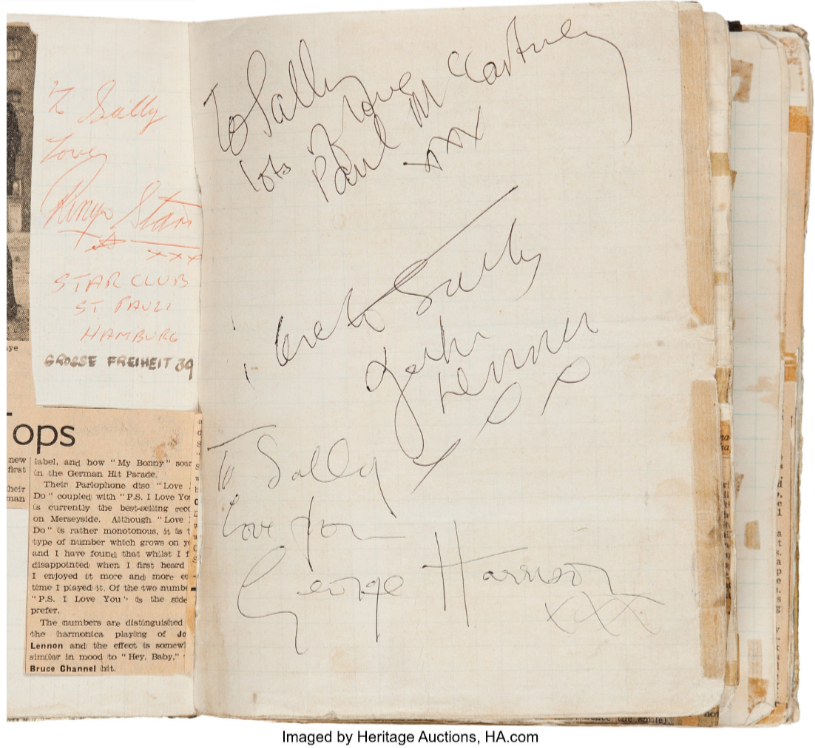 To Sally
Love
Ringo Starr
xxx
STAR CLUB
ST PAULI
HAMBURG
GROSSE FREIHEIT 39
ops
new
first
heir
man
label, and how "My Bonny" soar
in the German Hit Parade.
Their Parlophone disc "Love
Do" coupled with "P.S. I Love You
is currently the best-selling reco
on Merseyside. Although "Love
Do" is rather monotonous, it is t
type of number which grows on yo
and I have found that whilst I f
disappointed when I first heard
I enjoyed it more and more ea
time I played it. Of the two numbe
"P.S. I Love You" is the side
prefer.
The numbers are distinguished
the harmonica playing of Jo
Lennon and the effect is somewh
similar in mood to "Hey, Baby,"
Bruce Channel hit.
To Sally
lots of love
Paul McCartney
xxx
love to Sally
John
Lennon
To Sally
Love from
George Harrison
xxx
Imaged by Heritage Auctions, HA.com